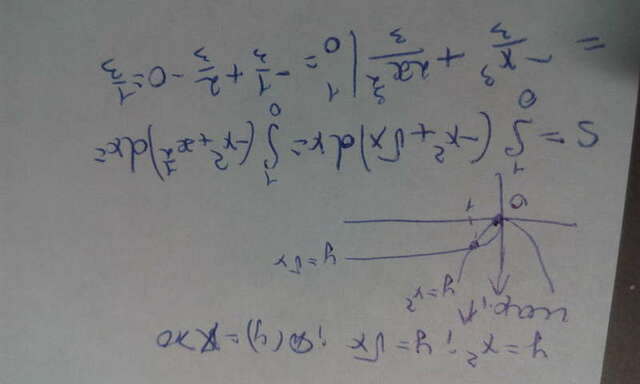 y = x²; y = √x ; D(y) = x>0
y = x²
y = √x
0 1
S = ∫₀¹ (-x² + √x) dx = ∫₀¹ (-x² + x^{1/2}) dx =
= -x³/3 + 2x^{3/2}/3 |₀¹ = -1/3 + 2/3 - 0 = 1/3